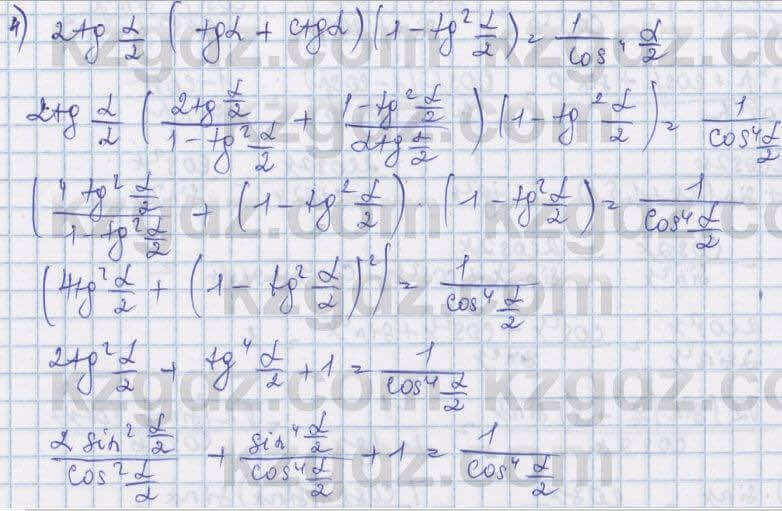 4) 2tg α/2 (tgα + ctgα)(1 - tg² α/2) = 1/cos⁴ α/2
2tg α/2 (2tg α/2 / 1 - tg² α/2 + 1 - tg² α/2 / 2tg α/2)(1 - tg² α/2) = 1/cos⁴ α/2
(4tg² α/2 / 1 - tg² α/2 + (1 - tg² α/2) · (1 - tg² α/2) = 1/cos⁴ α/2
(4tg² α/2 + (1 - tg² α/2)²) = 1/cos⁴ α/2
2tg² α/2 + tg⁴ α/2 + 1 = 1/cos⁴ α/2
2 sin² α/2 / cos² α/2 + sin⁴ α/2 / cos⁴ α/2 + 1 = 1/cos⁴ α/2
kzgdz.com